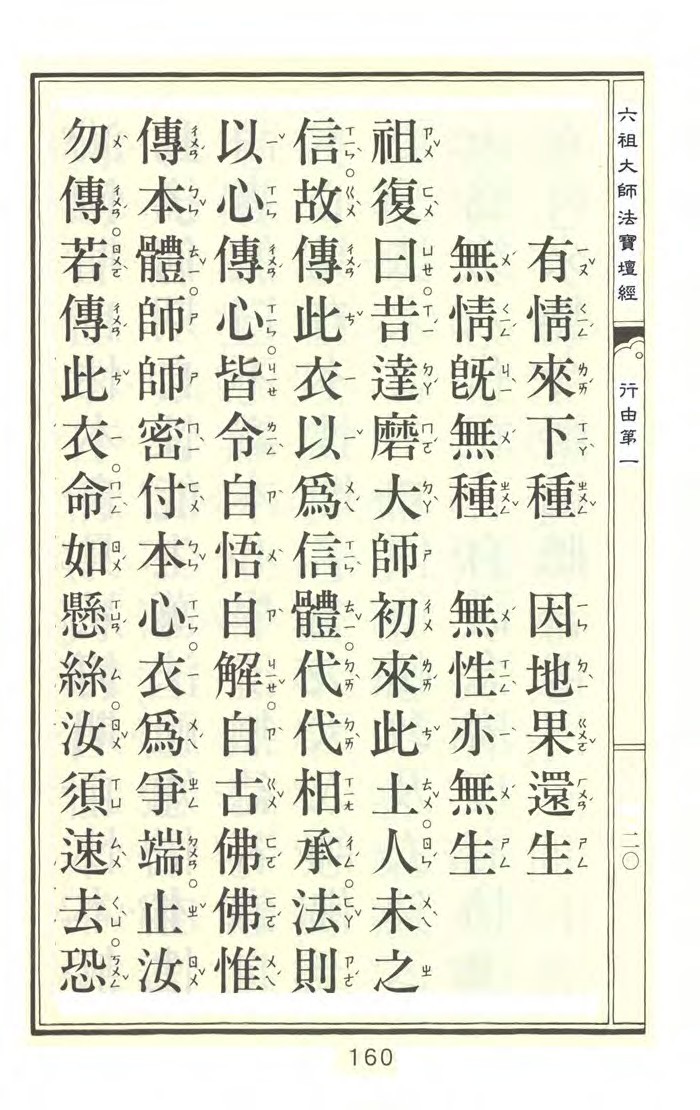 六祖大師法寶壇經
行由第一
二〇
有情來下種 因地果還生
無情既無種 無性亦無生
祖復曰。昔達磨大師初來此土。人未之
信。故傳此衣以為信體。代代相承。法則
以心傳心。皆令自悟自解。自古佛佛惟
傳本體。師師密付本心。衣為爭端。止汝
勿傳。若傳此衣。命如懸絲。汝須速去。恐
160